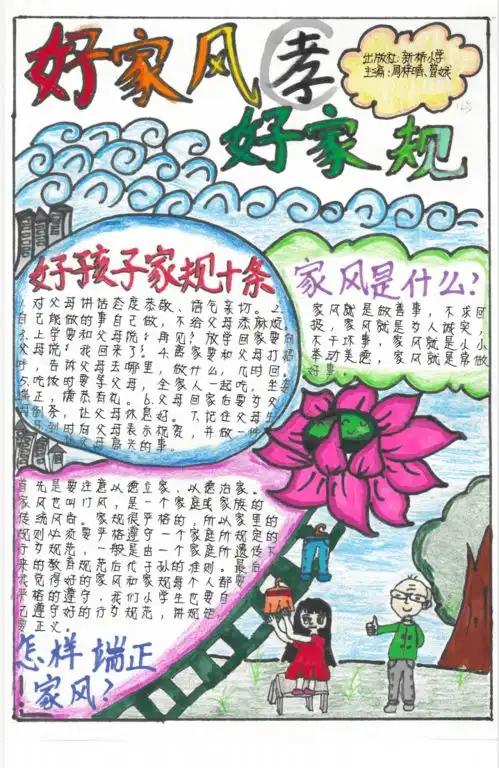 好家风 孝
好家规
出版社:新桥小学
主编:周梓晴、
好孩子家规十条
1.对父母讲话态度恭敬、语气亲切。2.
自己能做的事自己做,不给父母添麻烦。
3.上学要和父母说:再见!放学回家要向
父母说:我回来了!4.离家要和父母打招
呼,告诉父母去哪里,做什么,几时回。
5.吃饭时要等父母,全家人一起吃,坐姿
端正,懂示有礼。6.父母回家后要为父
母倒茶,让父母休息好。7.记住父母生
日,到时向父母表示祝贺,并做一件
让父母高兴的事。
家风是什么?
家风就是做善事,不求回
报,家风就是为人诚实,
不干坏事,家风就是小小
举动美德,家风就是常做
好事。
首先是要注意以德立家、以德治家。
家风也叫门风,是一个家庭或家族的
传统风尚。家规很严格的,所以家里的
规则必须要严格遵守一个家庭所规定的
行为规范,一般是由一个家庭所遗传下
来的教育规范后代子孙的准则。最后
我觉得好的家风和家规每个人都要
严格的遵守,我们小学生也要自
己遵守好的行为规范,讲规矩,
要正义。
怎样端正
家风?